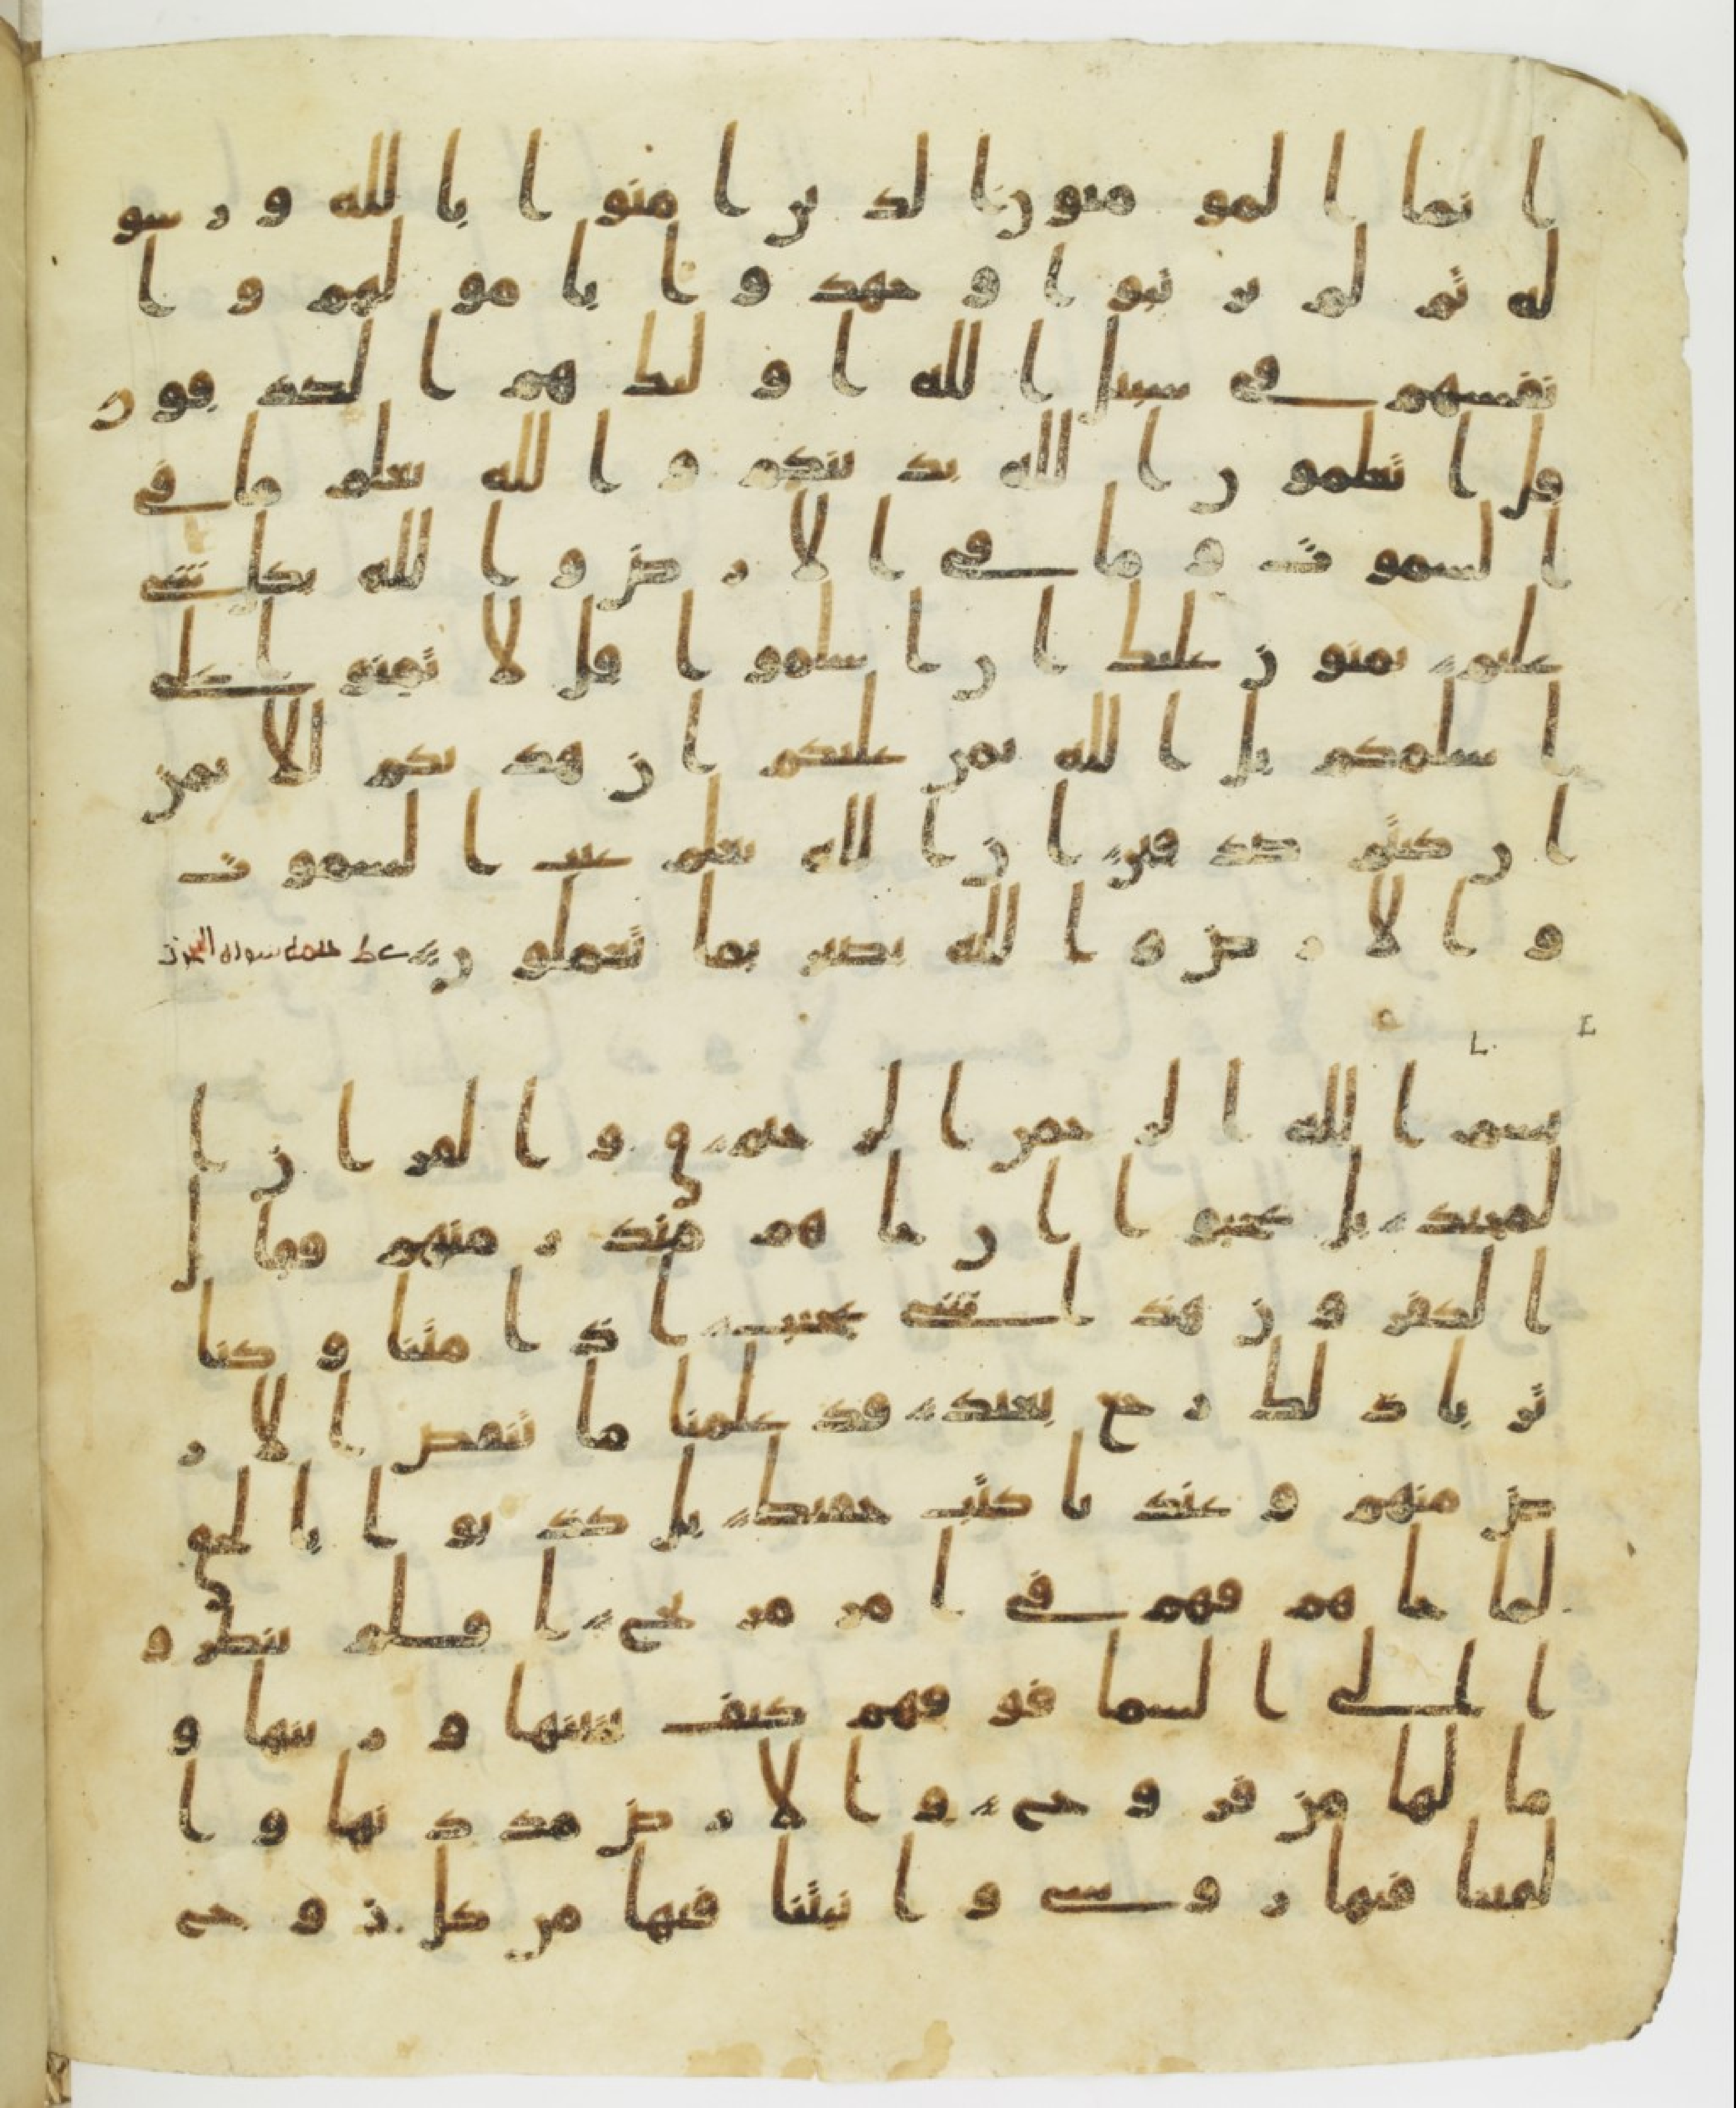 انما المومنون الذين امنوا بالله ورسو
له ثم لم يرتبوا وجهدوا بامولهم وا
نفسهم في سبيل الله اوليك هم الصدقون
قل اتعلمون الله بدينكم والله يعلم ما في
السموت وما في الارض والله بكل شي
عليم يمنون عليك ان اسلموا قل لا تمنوا علي
اسلمكم بل الله يمن عليكم ان هديكم للايمن
ان كنتم صدقين ان الله يعلم غيب السموت
والارض والله بصير بما تعملون خاتمة سورة الحجرت
بسم الله الرحمن الرحيم ق والقران ا
لمجيد بل عجبوا ان جاهم منذر منهم فقال
الكفرون هذا شي عجيب اذا متنا وكنا
ترابا ذلك رجع بعيد قد علمنا ما تنقص الار
ض منهم وعندنا كتب حفيظ بل كذبوا بالحق
لما جاهم فهم في امر مريج افلم ينظرو
ا الى السما فوقهم كيف بنينها وزينها و
ما لها من فروج والارض مددنها وا
لقينا فيها روسي وانبتنا فيها من كل زوج